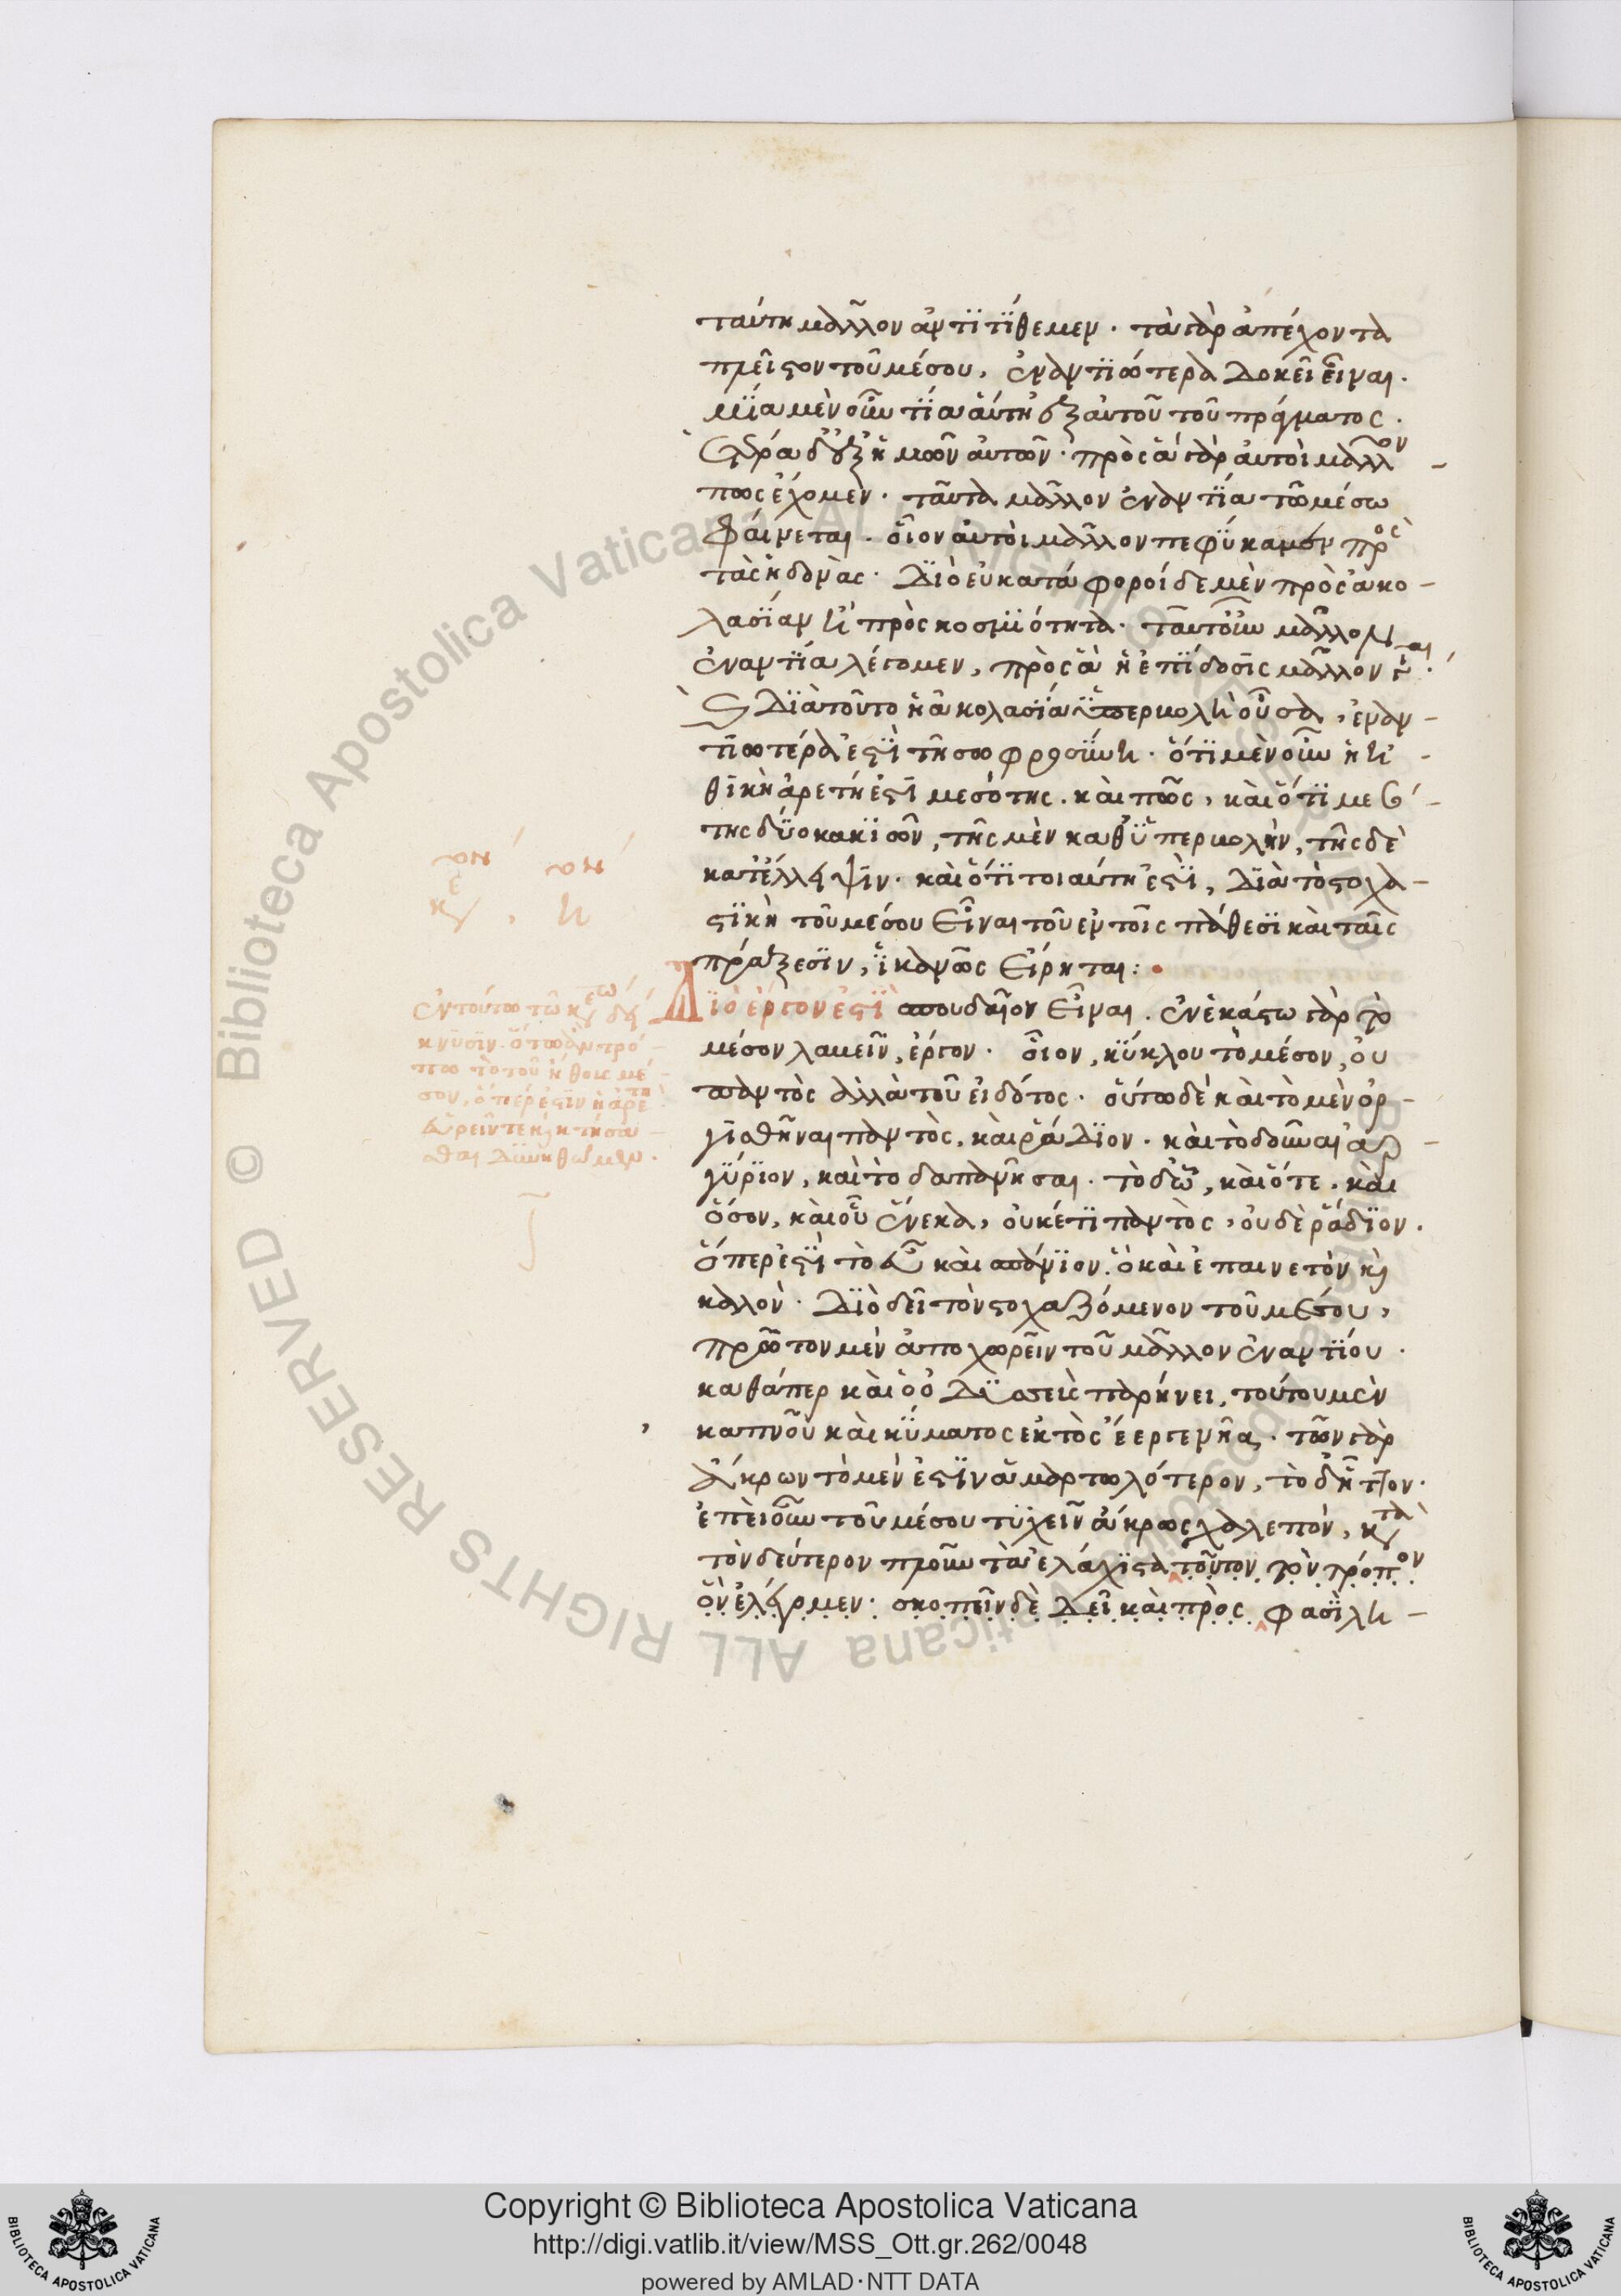 ταύτη μᾶλλον ἀντιτίθεμεν· τὰ γὰρ ἀπέχοντα
πλεῖστον τοῦ μέσου, ἐναντιώτερα δοκεῖ εἶναι.
μία μὲν οὖν αἰτία αὕτη ἐξ αὐτοῦ τοῦ πράγματος.
ἑτέρα δ' ἐξ ἡμῶν αὐτῶν· πρὸς ἃ γὰρ αὐτοὶ μᾶλλον
πως ἔχομεν· ταῦτα μᾶλλον ἐναντία τῶ μέσω
φαίνεται. οἷον αὐτοὶ μᾶλλον πεφύκαμεν πρὸς
τὰς ἡδονάς· διὸ εὐκατάφοροί ἐσμεν πρὸς ἀκο-
λασίαν ἢ πρὸς κοσμιότητα. ταῦτ' οὖν μᾶλλον
ἐναντία λέγομεν, πρὸς ἃ ἡ ἐπίδοσις μᾶλλον γίνεται.
καὶ διὰ τοῦτο ἡ ἀκολασία ὑπερβολὴ οὖσα, ἐναν-
τιωτέρα ἐστὶ τῇ σωφροσύνη. ὅτι μὲν οὖν ἡ ἠ-
θικὴ ἀρετή ἐστι μεσότης. καὶ πῶς, καὶ ὅτι μεσό-
της δύο κακιῶν, τῆς μὲν καθ' ὑπερβολὴν, τῆς δὲ
κατ' ἔλλειψιν. καὶ ὅτι τοιαύτη ἐστὶ, διὰ τὸ στοχα-
στικὴ τοῦ μέσου εἶναι τοῦ ἐν τοῖς πάθεσι καὶ ταῖς
πράξεσιν, ἱκανῶς εἴρηται:
Διὸ ἔργον ἐστὶ σπουδαῖον εἶναι. ἐν ἑκάστω γὰρ τὸ
μέσον λαβεῖν, ἔργον. οἷον, κύκλου τὸ μέσον, οὐ
παντὸς ἀλλὰ τοῦ εἰδότος. οὕτω δὲ καὶ τὸ μὲν ὀρ-
γισθῆναι παντὸς, καὶ ῥάδιον. καὶ τὸ δοῦναι ἀρ-
γύριον, καὶ τὸ δαπανῆσαι. τὸ δ' ᾧ, καὶ ὅτε. καὶ
ὅσον, καὶ οὗ ἕνεκα, οὐκέτι παντὸς, οὐδὲ ῥάδιον.
ὅπερ ἐστὶ τὸ εὖ καὶ σπάνιον. ὃ καὶ ἐπαινετὸν καὶ
καλόν. διὸ δεῖ τὸν στοχαζόμενον τοῦ μέσου,
πρῶτον μὲν ἀποχωρεῖν τοῦ μᾶλλον ἐναντίου.
καθάπερ καὶ ὁ ὀδυσεὺς παρήνει, τούτου μὲν
καπνοῦ καὶ κύματος ἐκτὸς ἔεργε νῆα. τῶν γὰρ
ἄκρων τὸ μὲν ἐστὶν ἁμαρτωλότερον, τὸ δ' ἧττον.
ἐπεὶ οὖν τοῦ μέσου τυχεῖν ἄκρως χαλεπὸν, κατὰ
τὸν δεύτερον πλοῦν τὰ ἐλάχιστα τοῦτον τὸν τρόπον
ὃν λέγομεν· σκοπεῖν δὲ δεῖ καὶ πρὸς φασὶ λη-
ἐν τούτω τῷ κεφαλαίω δεί-
κνυσιν. ὅτω ἂν τρό-
πω τὸ τοῦ ἤθους μέ-
σον, ὅπερ ἐστὶν ἡ ἀρετὴ
εὑρεῖν τε καὶ κτήσα-
σθαι δυνηθῶμεν.
Copyright © Biblioteca Apostolica Vaticana
http://digi.vatlib.it/view/MSS_Ott.gr.262/0048
powered by AMLAD·NTT DATA
BIBLIOTECA APOSTOLICA VATICANA
BIBLIOTECA APOSTOLICA VATICANA
© Biblioteca Apostolica Vaticana ALL RIGHTS RESERVED